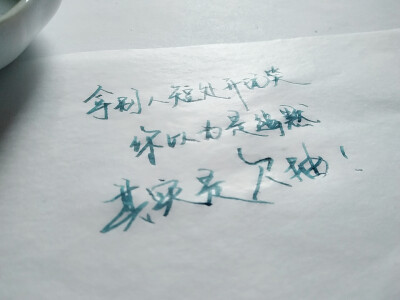 拿别人短处开玩笑
你以为是幽默
其实是欠抽！